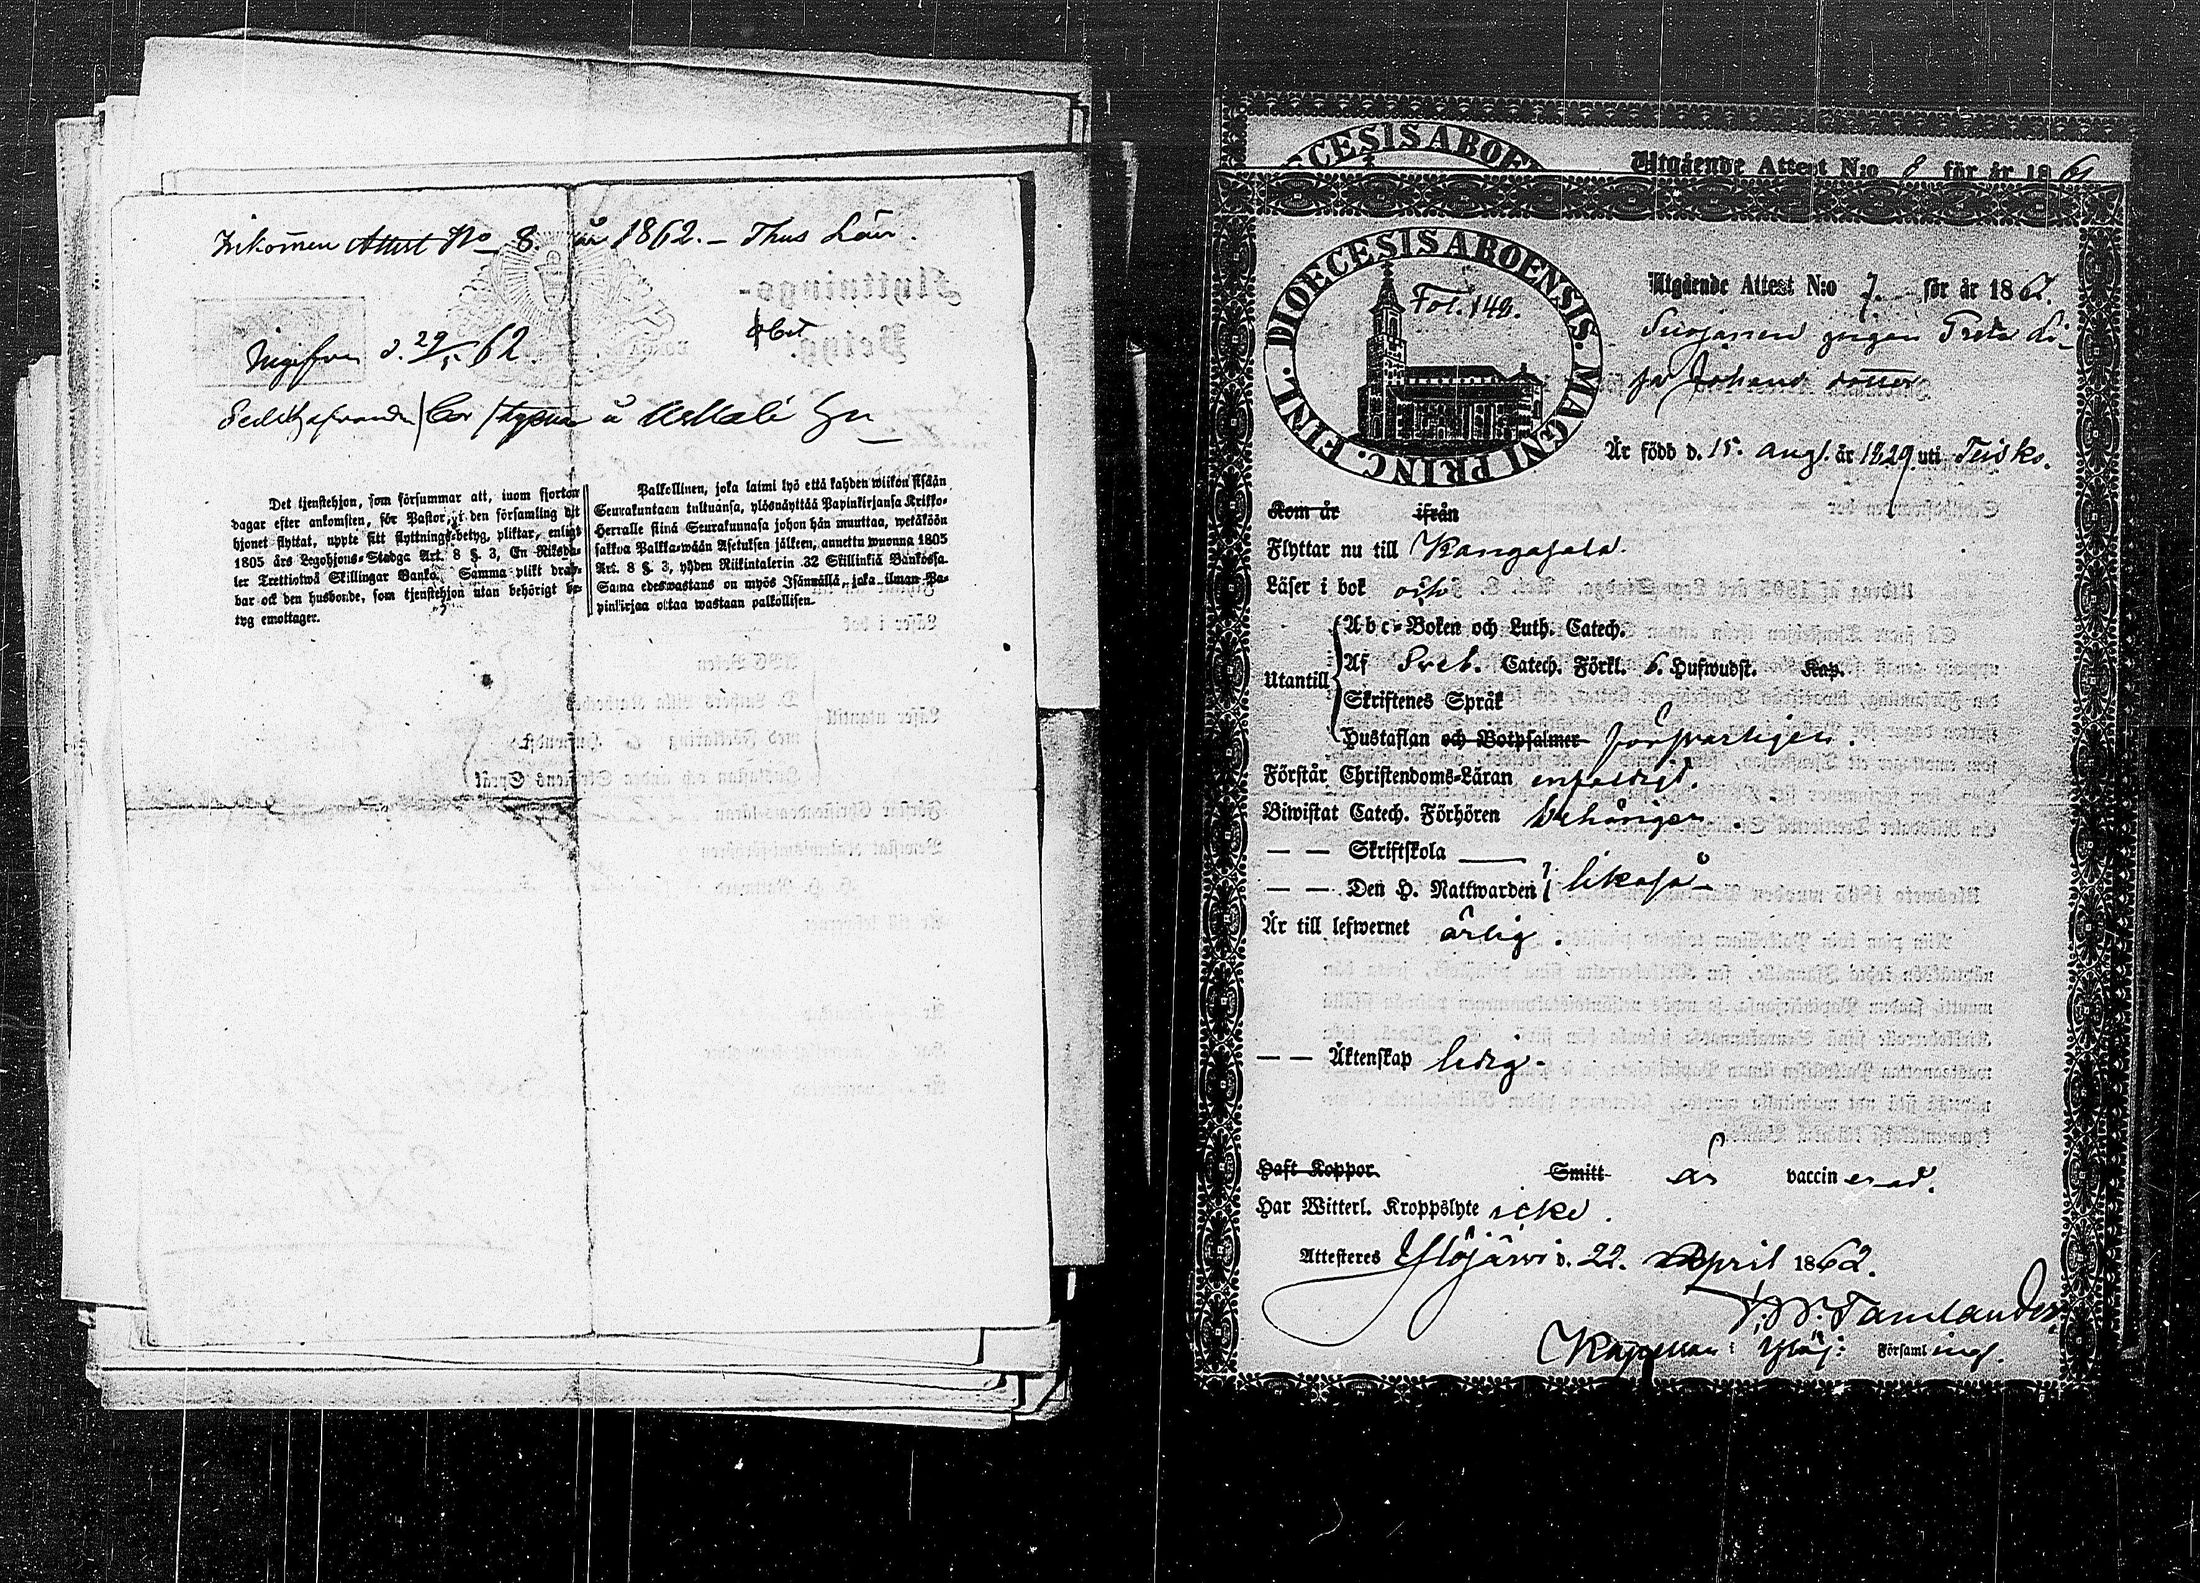 Inkommen Attest No 8. år 1862. – Thus Län.
d. 29/5 62.
Det tjenstehjon, som försummar att, inom fjorton
dagar efter ankomsten, för Pastor, i den församling dit
hjonet flyttat, uppte sitt flyttnings-betyg, pliktar, enligt
1805 års Legohjons-Stadga Art. 8 §. 3, En Riksda-
ler Trettiotwå Skillingar Banko. Samma plikt dra-
bar ock den husbonde, som tjenstehjon utan behörigt be-
tyg emottager.
Palkollinen, joka laimi lyö että kahden wiikon sisään
Seurakuntaan tultuansa, ylösnäyttää Papinkirjansa Kirkko-
Herralle siinä Seurakunnasa johon hän muuttaa, wetäköön
sakkoa Palkka-wään Asetuksen jälkeen, annettu wuonna 1805
Art. 8 §. 3, yhden Riikintalerin 32 Skillinkiä Bankossa.
Sama edeswastans on myös Isännällä, joka ilman Pa-
pinkirjaa ottaa wastaan palkollisen.
DIOECESIS ABOEN
Utgående Attest N:o 8 för år 1861
DIOECESIS ABOENSIS. MAGNI PRINC. FINL.
Fol. 140.
Utgående Attest N:o 7. för år 1862.
pigan Greta Li-
sa Johans dotter
Är född d. 15. Aug. år 1829 uti Teisko.
Kom år ifrån
Flyttar nu till Kangasala.
Läser i bok
Utantill
Abc-Boken och Luth. Catech.
Af Sveb. Catech. Förkl. 6. Hufwudst. Kap.
Skriftenes Språk
Hustaflan och Botpsalmer försvarligen.
Förstår Christendoms-Läran enfaldigt.
Biwistat Catech. Förhören behörigen.
— — Skriftskola ——
— — Den H. Nattwarden likaså –
Är till lefwernet ärlig.
— — Äktenskap ledig –
Haft Koppor Smitt är vaccinerad.
Har Witterl. Kroppslyte icke.
Attesteres Ylöjärwi d. 22. April 1862.
Tamlander,
Kapellan i Ylöj: Församling.